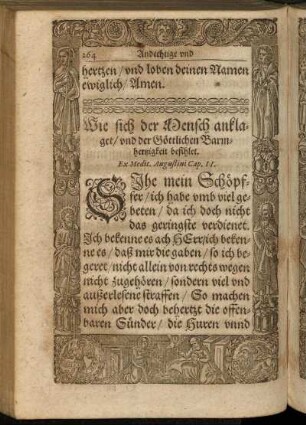 264 Andechtige vnd
hertzen / vnd loben deinen Namen
ewiglich / Amen.
Wie sich der Mensch ankla-
get / vnd der Göttlichen Barm-
hertzigkeit befihlet.
Ex Medit. Augustini Cap. II.
SIhe mein Schöpf-
fer / ich habe vmb viel ge-
beten / da ich doch nicht
das geringste verdienet.
Ich bekenne es ach HErr / ich beken-
ne es / daß mir die gaben / so ich be-
geret / nicht allein von rechts wegen
nicht zugehören / sondern viel vnd
außerlesene straffen / So machen
mich aber doch behertzt die offen-
baren Sünder / die Huren vnnd